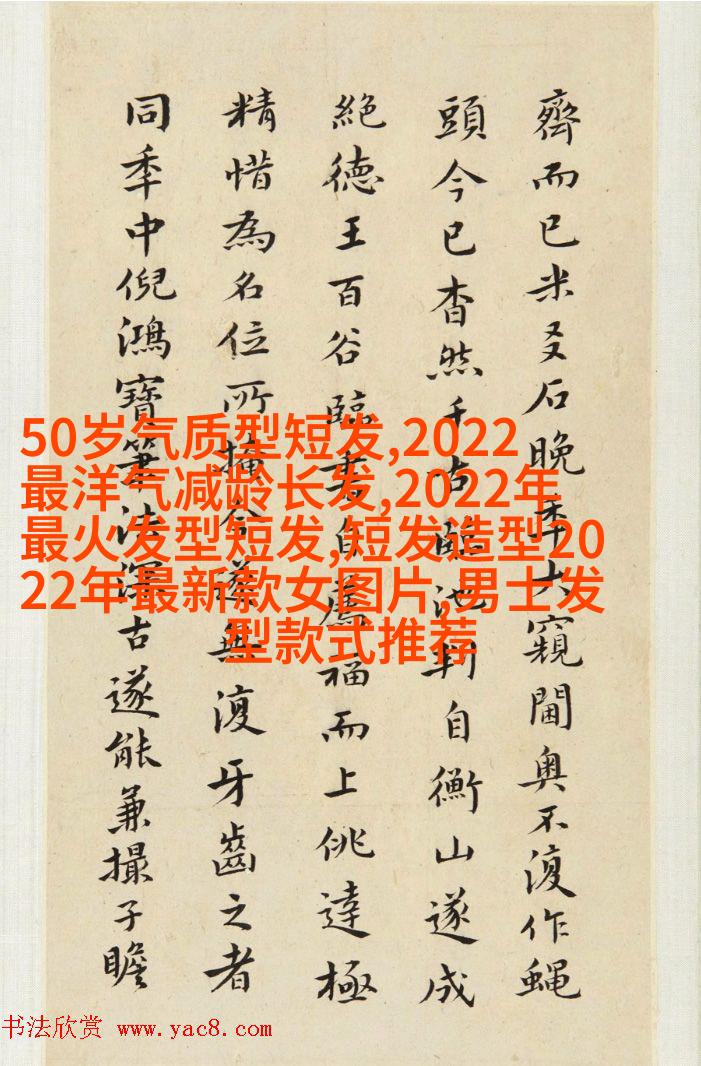 齊而已米友石晚年大窺閫奥不復作蝇
頭今已杳然千古臨池判自衡山遂成
絕德王百谷臨書自薦福而上佻達極
精惜為名位所掩今遂無復牙齒之者
同年中倪鴻寶筆法深古遂能兼撮子瞻
50岁气质型短发,2022
最洋气减龄长发,2022年
最火发型短发,短发造型20
22年最新款女图片,男士发
型款式推荐
书法欣赏 www.yac8.com